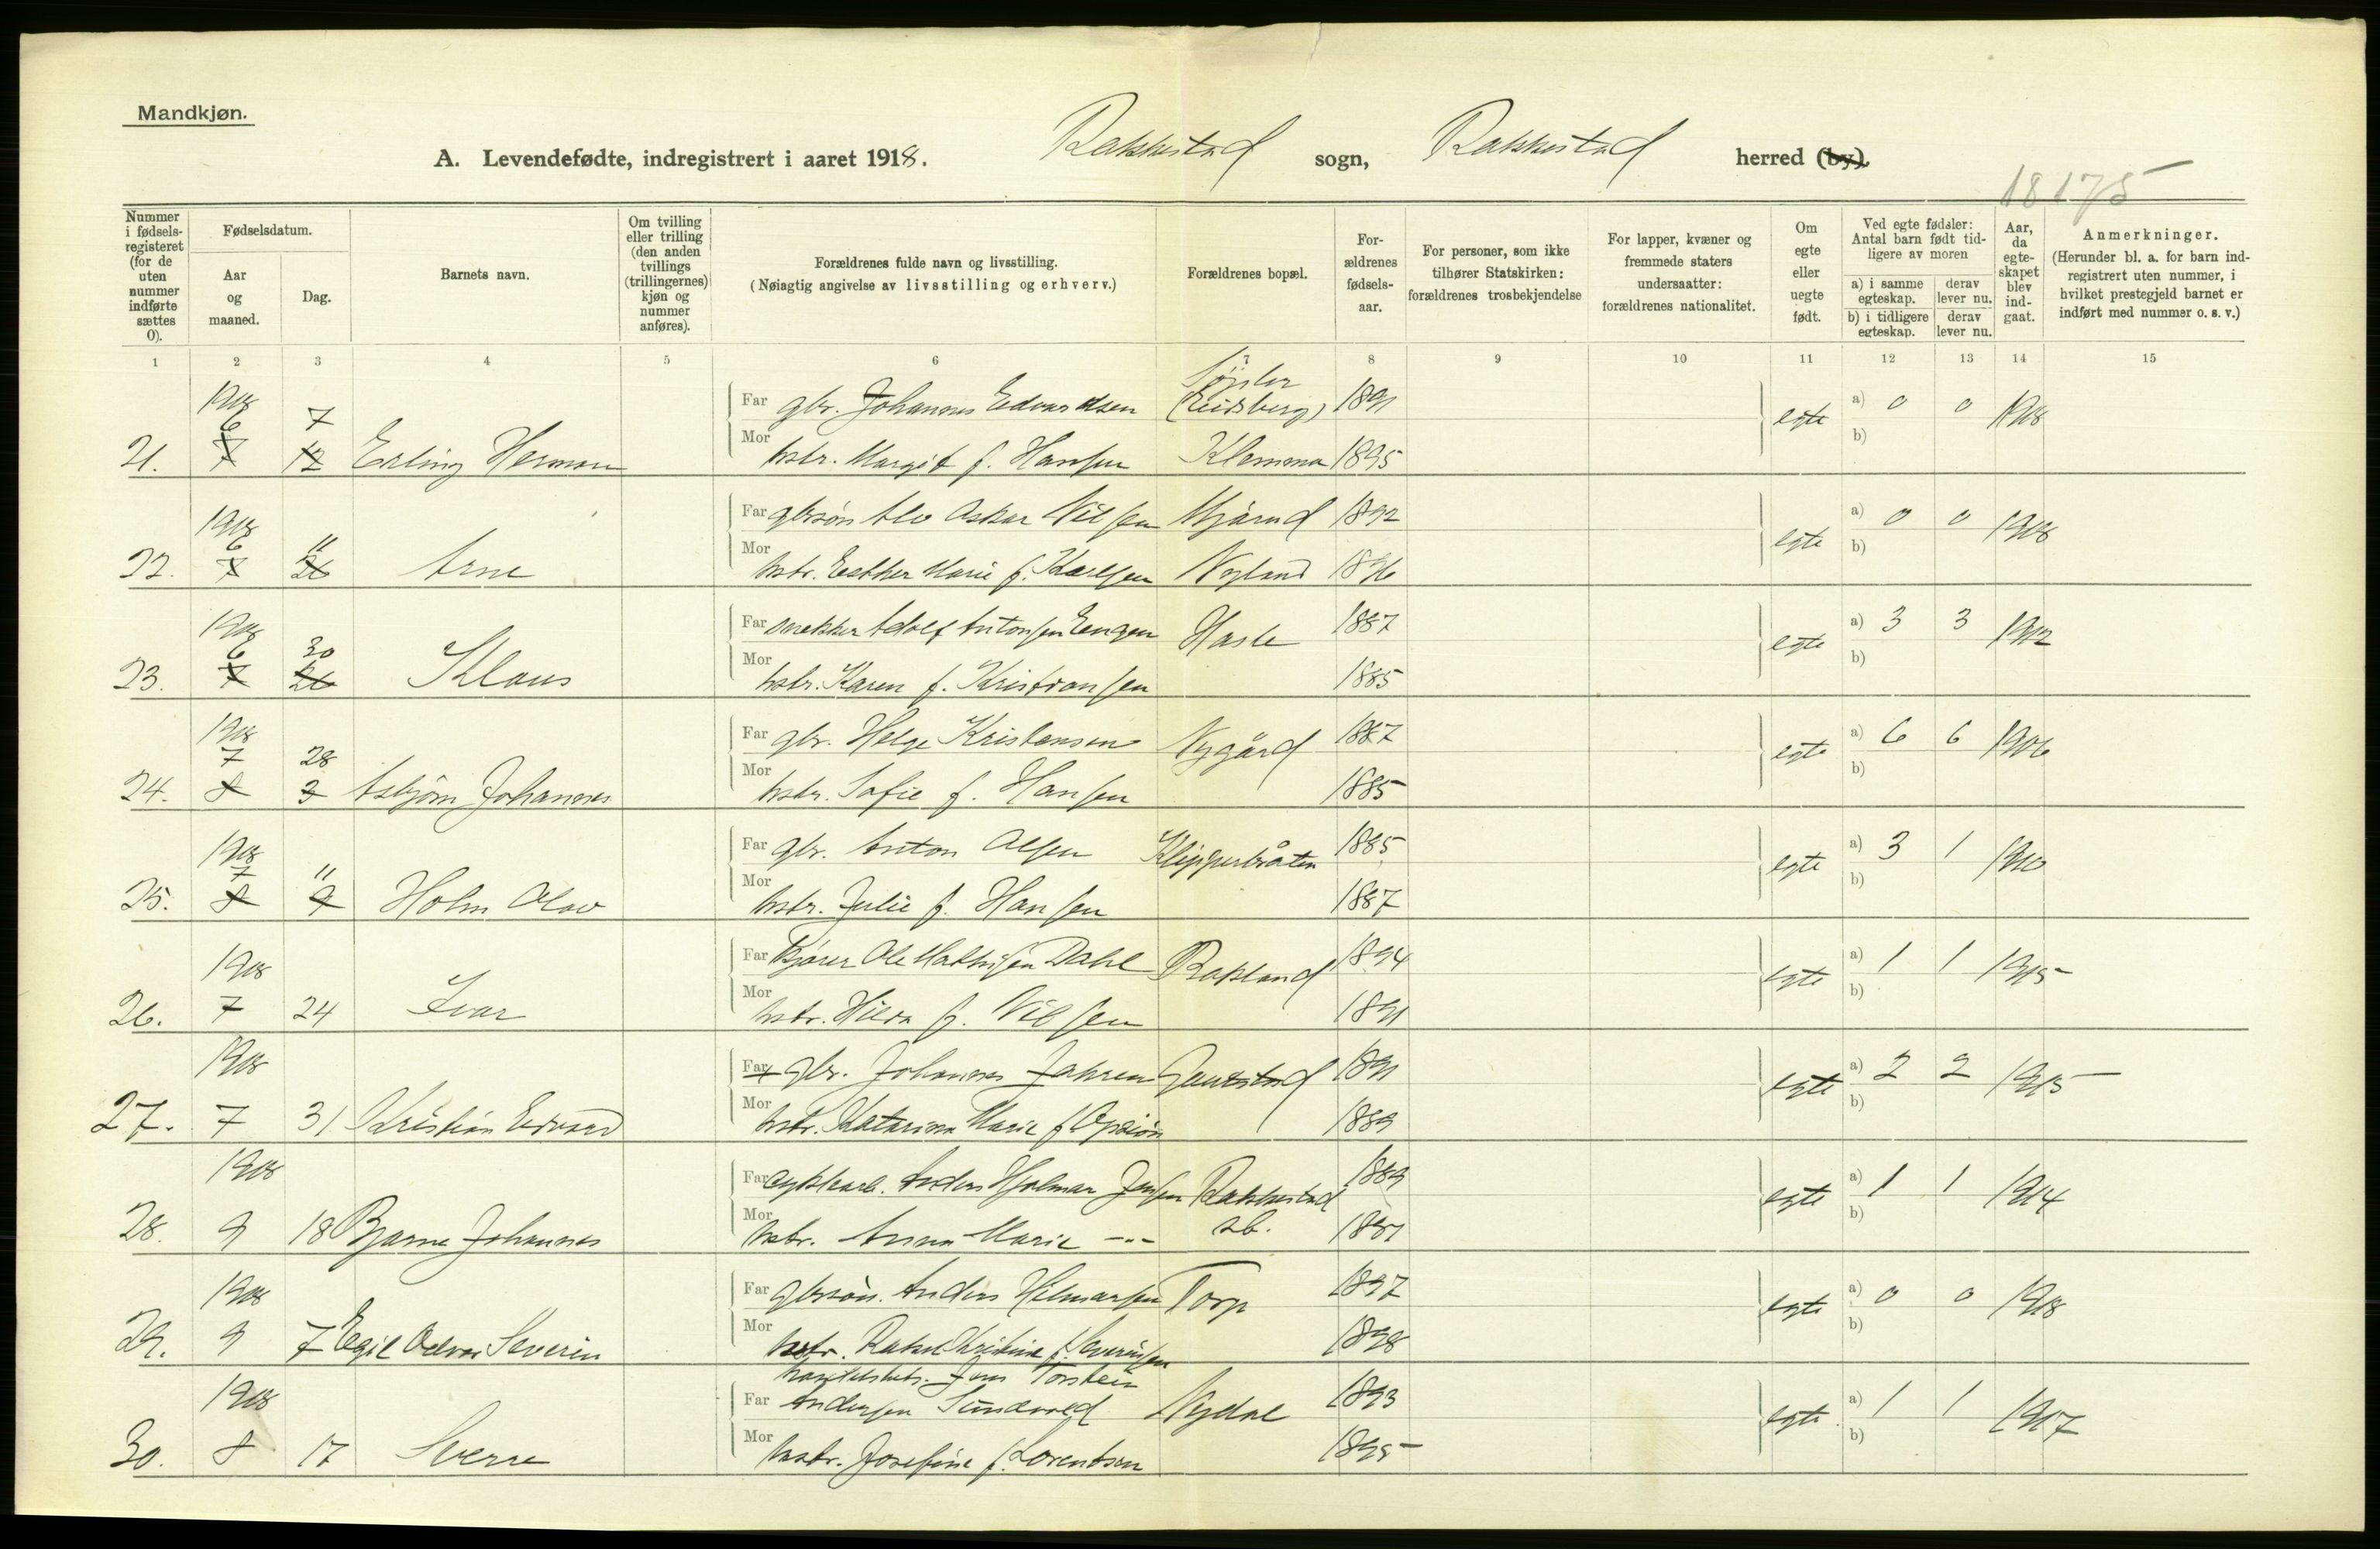 Mandkjøn.
A. Levendefødte, indregistrert i aaret 1918. Rakkestad sogn, Rakkestad herred (by).
18175
Nummer i fødselsregisteret (for de uten nummer indførte sættes 0).
Fødselsdatum.
Aar og maaned.
Dag.
Barnets navn.
Om tvilling eller trilling (den anden tvillings (trillingernes) kjøn og nummer anføres).
Forældrenes fulde navn og livsstilling.
(Nøiagtig angivelse av livsstilling og erhverv.)
Forældrenes bopæl.
Forældrenes fødselsaar.
For personer, som ikke tilhører Statskirken: forældrenes trosbekjendelse
For lapper, kvæner og fremmede staters undersaatter: forældrenes nationalitet.
Om egte eller uegte født.
Ved egte fødsler: Antal barn født tidligere av moren
a) i samme egteskap. derav lever nu.
b) i tidligere egteskap. derav lever nu.
Aar, da egteskapet blev indgaat.
Anmerkninger.
(Herunder bl. a. for barn indregistrert uten nummer, i hvilket prestegjeld barnet er indført med nummer o. s. v.)
1 2 3 4 5 6 7 8 9 10 11 12 13 14 15
1918 6 7 Far gbr. Johannes Edvardsen (Eidsberg) 1891 egte a) 0 0 1918
21. 7 12 Erling Herman Mor hstr. Margit f. Hansen Klemma 1895 b)
1918 6 11 Far gbrsøn Alv Oskar Nilsen Mjørud 1892 egte a) 0 0 1918
22. 7 26 Arne Mor hstr. Esther Marie f. Karlsen Nyland 1896 b)
1918 6 30 Far snekker Adolf Antonsen Eengen Hasle 1887 egte a) 3 3 1912
23. 7 26 Klaus Mor hstr. Karen f. Kristiansen 1885 b)
1918 7 28 Far gbr. Helge Kristensen Nygård 1887 egte a) 6 6 1906
24. 8 3 Asbjørn Johannes Mor hstr. Sofie f. Hansen 1885 b)
1918 7 11 Far gbr. Anton Olsen Klypperbråten 1885 egte a) 3 1 1910
25. 8 9 Holm Olav Mor hstr. Julie f. Hansen 1887 b)
1918 Far Kjører Ole Mathisen Dahl Rakland 1894 egte a) 1 1 1915
26. 7 24 Ivar Mor hstr. Hilda f. Nilsen 1891 b)
1918 Far gbr. Johannes Jahren Gautestad 1891 egte a) 2 2 1915
27. 7 31 Kristian Edvard Mor hstr. Katarina Marie f. Opsiøn 1889 b)
1918 Far Anders Hjalmar Jensen Rakkestad 1889 egte a) 1 1 1914
28. 9 18 Bjarne Johannes Mor hstr. Anna Marie -"- sb. 1891 b)
1918 Far gbrsøn. Anders Hilmarsen Torp 1897 egte a) 0 0 1918
29. 9 7 Egil Odvar Severin Mor hstr. Rakel Kristine f. Severinsen 1898 b)
handelsbetj. Jens Torstein
1918 Far Andersen Sundvold Nydal 1893 egte a) 1 1 1917
30. 8 17 Sverre Mor hstr. Josefine f. Lorentsen 1895 b)